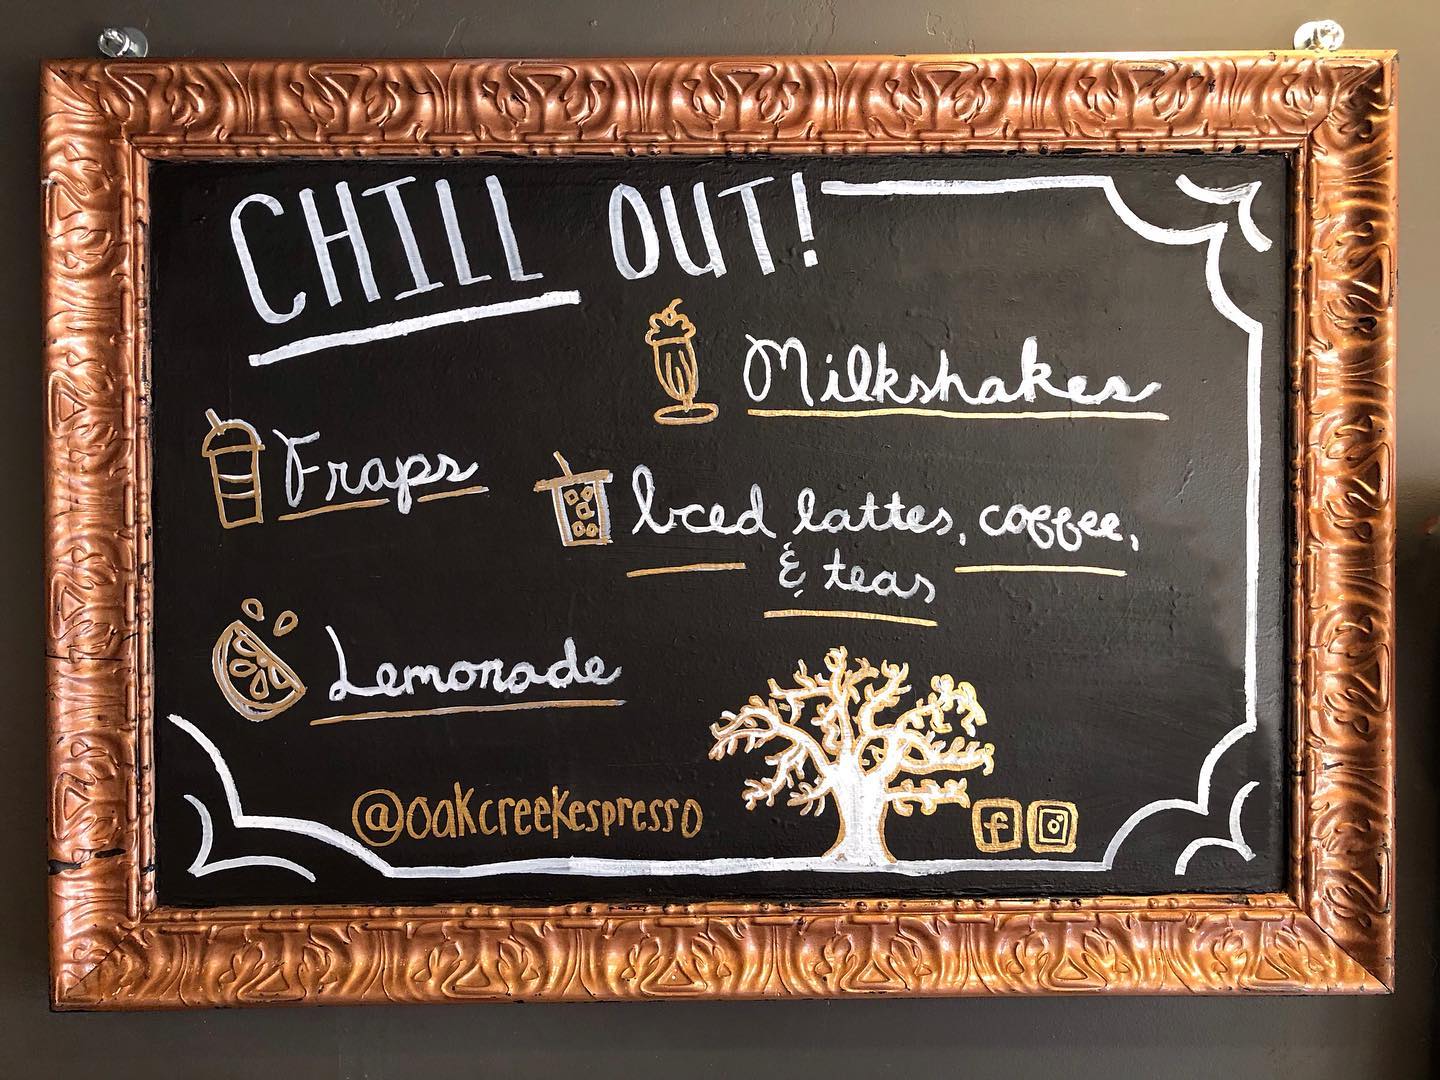 CHILL OUT!
Milkshakes
Fraps
Iced lattes, coffee,
& teas
Lemonade
@oakcreekespresso
f